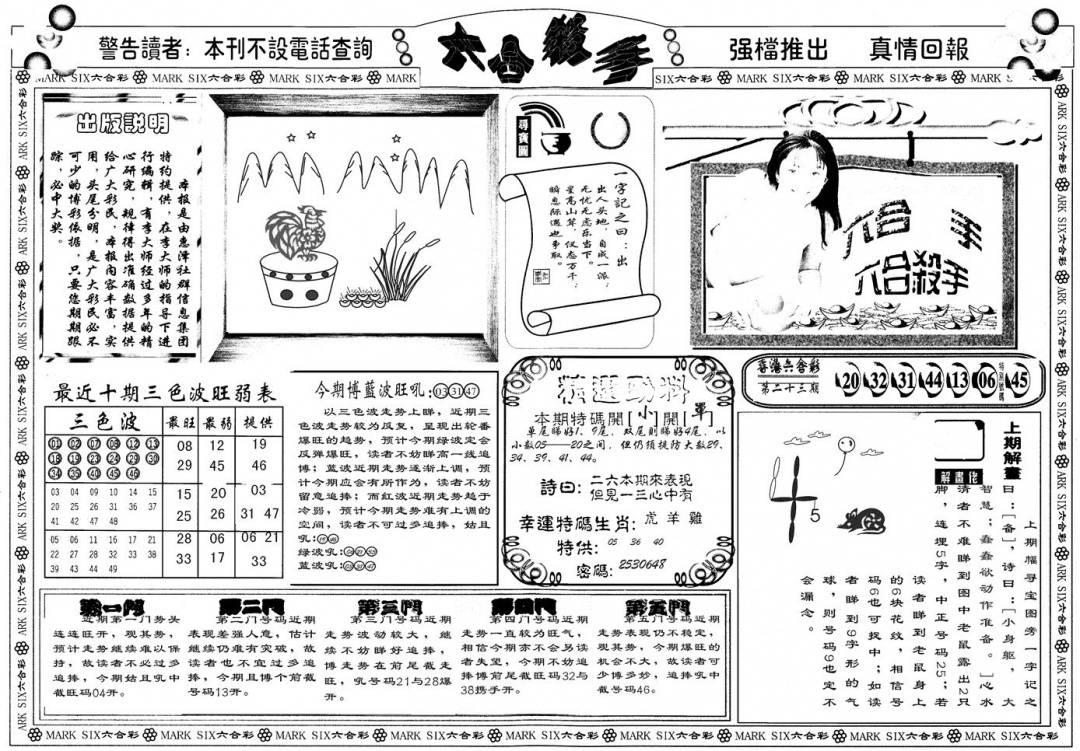 警告讀者：本刊不設電話查詢
六合殺手
强檔推出　真情回報
MARK SIX六合彩 MARK SIX六合彩 MARK SIX六合彩 MARK
SIX六合彩 MARK SIX六合彩 MARK SIX六合彩 MARK SIX六合彩
出版説明
本报是由惠泽社群信息集团
特约提供，在李大师的指导下进
行编辑，有李大师经过多年的精
心研究，规律得出准确数据提供
给广大彩民，本报内容丰富，实
用，头尾分明，是广大彩民必不
可少的博彩依据，只要您期期跟
踪，必中大奖。
尋寶圖
一字記之曰：出
出人头地，自成一派，
无忧无虑乐当下。
星高山草，仪态万千，
瞬息际遇也争取。
六合 手
六合殺手
香港六合彩
第二十三期
20 32 31 44 13 06 特别號碼 45
最近十期三色波旺弱表
三色波 最旺 最弱 提供
01 02 07 08 12 13
18 19 23 24 29 30
34 35 40 45 46
08 12 19
29 45 46
03 04 09 10 14 15
20 25 26 31 36 37
41 42 47 48
15 20 03
25 26 31 47
05 06 11 16 17 21
22 27 28 32 33 38
39 43 44 49
28 06 06 21
33 17 33
今期博藍波旺吼:03 31 47
以三色波走势上睇，近期三
色波走势较为反复，呈现出轮番
爆旺的趋势，预计今期绿波定会
反弹爆旺，读者不妨睇高一线追
博；蓝波近期走势逐渐上调，预
计今期应会有所作为，读者不妨
留意追捧；而红波近期走势趋于
冷弱，预计今期走势难有上调的
空间，读者不可过多追捧，姑且
吼:
绿波吼:
蓝波吼:
精選勁料
本期特碼開[小]開[單]
单尾睇好1、9尾，双尾则睇好4尾，以
小数05——20之间，但仍须提防大数29、
34、39、41、44。
詩曰：二六本期來表現
但見一三心中有
幸運特碼生肖：虎 羊 雞
特供：05 36 40
密碼：2530648
上期解畫
解畫佬
5
上期幅寻宝图旁一字记之
曰：[备]，诗曰：[小身躯，大
智慧；蠢蠢欲动作准备。]心水
清者不难睇到图中老鼠露出2只
脚，连埋5字，中正号码25；若
读者睇到老鼠身上
的6块花纹，相信号
码6也可捉中；如读
者睇到9字形的气
球，则号码9也定不
会漏念。
第一門
近期第一门势头
连连旺开，观其势，
预计走势继续难以保
持，故读者不必过多
追捧，今期姑且吼中
截旺码04开。
第二門
第二门号码近期
表现差强人意，估计
继续仍难有突破，故
读者也不宜过多追
捧，今期且博个前截
号码13开。
第三門
第三门号码近期
走势波动较大，继
续不妨睇好追捧，
博走势在前尾截走
旺，吼号码21与28爆
开。
第四門
第四门号码近期
走势一直较为旺气，
相信今期亦不会另读
者失望，今期不妨追
捧博前尾截旺码32与
38携手开。
第五門
第五门号码近期
走势表现仍不稳定，
观其势，今期爆旺的
机会不大，故读者可
少博多妙，追捧吼中
截号码46。
MARK SIX六合彩 MARK SIX六合彩 MARK SIX六合彩 MARK SIX六合彩 MARK SIX六合彩 MARK SIX六合彩 MARK SIX六合彩 MARK SIX六合彩 MARK SIX六合彩